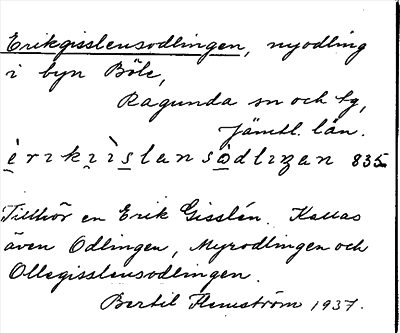 Erikgisslensodlingen, nyodling
i byn Böle,
Ragunda sn och tg,
Jämtl. län.
èrıkıìslansòdlıŋan 835
Tillhör en Erik Gisslén. Kallas
även Odlingen, Myrodlingen och
Ollegisslensodlingen.
Bertil Flemström 1937.